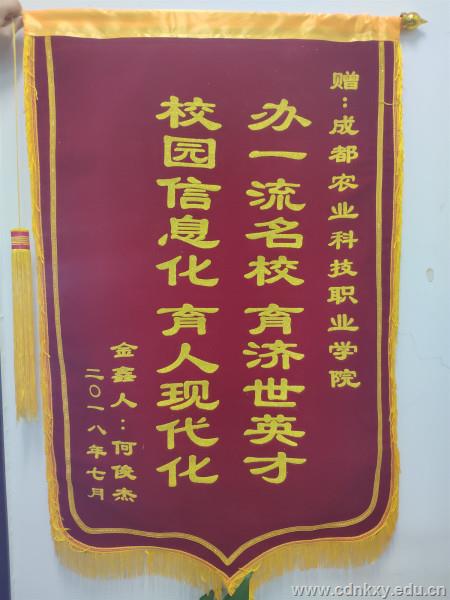 赠：成都农业科技职业学院
办一流名校 育济世英才
校园信息化 育人现代化
金鑫人：何俊杰
二〇一八年七月
www.cdnkxy.edu.cn